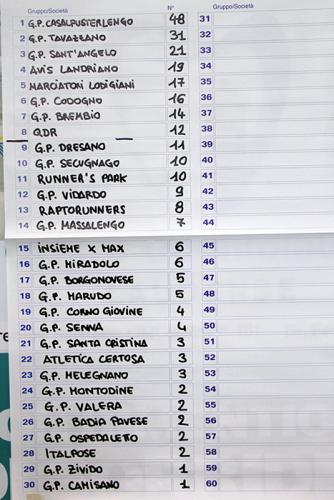 Gruppo/Società N° Gruppo/Società
1 G.P. CASALPUSTERLENGO 48 31
2 G.P. TAVAZZANO 31 32
3 G.P. SANT'ANGELO 21 33
4 AVIS LANDRIANO 19 34
5 MARCIATORI LODIGIANI 17 35
6 G.P. CODOGNO 16 36
7 G.P. BREMBIO 14 37
8 QDR 12 38
9 G.P. DRESANO 11 39
10 G.P. SECUGNAGO 10 40
11 RUNNER'S PARK 10 41
12 G.P. VIDARDO 9 42
13 RAPTORUNNERS 8 43
14 G.P. MASSALENGO 7 44
15 INSIEME X MAX 6 45
16 G.P. MIRADOLO 6 46
17 G.P. BORGONOVESE 5 47
18 G.P. MARUDO 5 48
19 G.P. CORNO GIOVINE 4 49
20 G.P. SENNA 4 50
21 G.P. SANTA CRISTINA 3 51
22 ATLETICA CERTOSA 3 52
23 G.P. MELEGNANO 3 53
24 G.P. MONTODINE 2 54
25 G.P. VALERA 2 55
26 G.P. BADIA PAVESE 2 56
27 G.P. OSPEDALETTO 2 57
28 ITALPOSE 2 58
29 G.P. ZIVIDO 1 59
30 G.P. CAMISANO 1 60